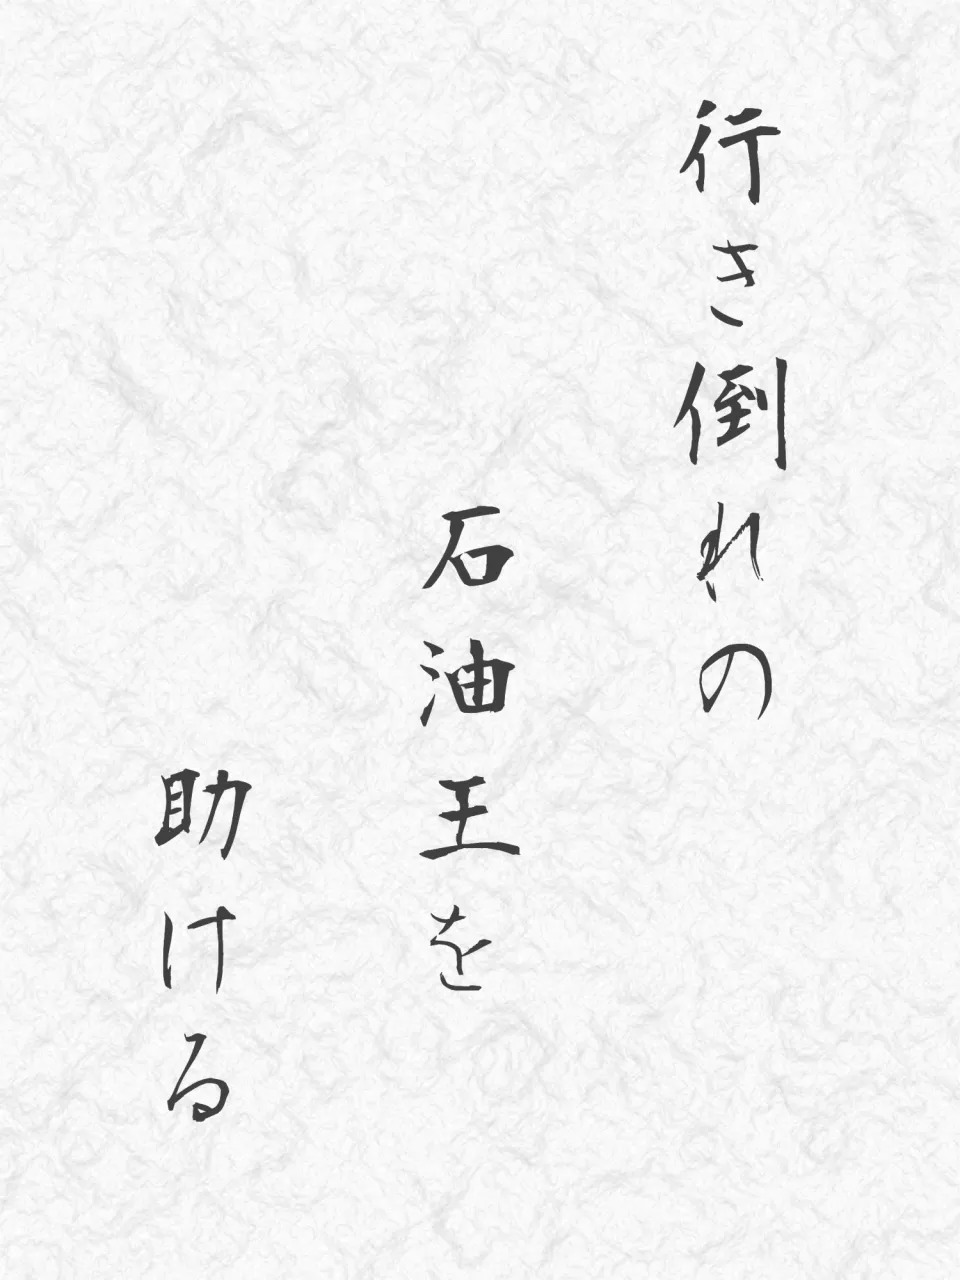 行き倒れの
石油王を
助ける